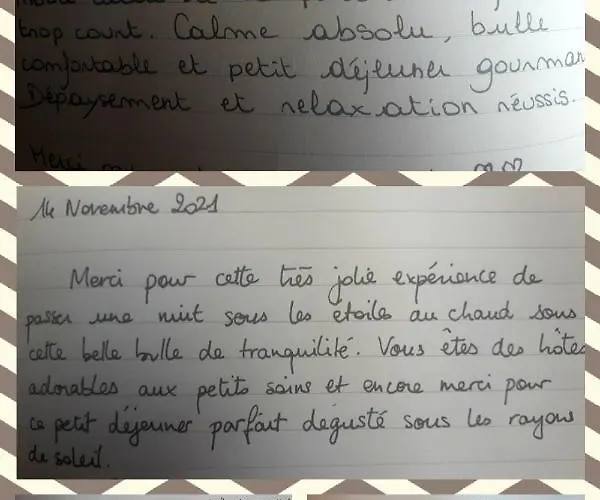 trop court. Calme absolu, bulle
comfortable et petit déjeuner gourman
Dépaysement et relaxation réussis.
Merci
14 Novembre 2021
Merci pour cette très jolie expérience de
passer une nuit sous les étoiles au chaud sous
cette belle bulle de tranquilité. Vous êtes des hôtes
adorables aux petits soins et encore merci pour
ce petit déjeuner parfait dégusté sous les rayons
de soleil.